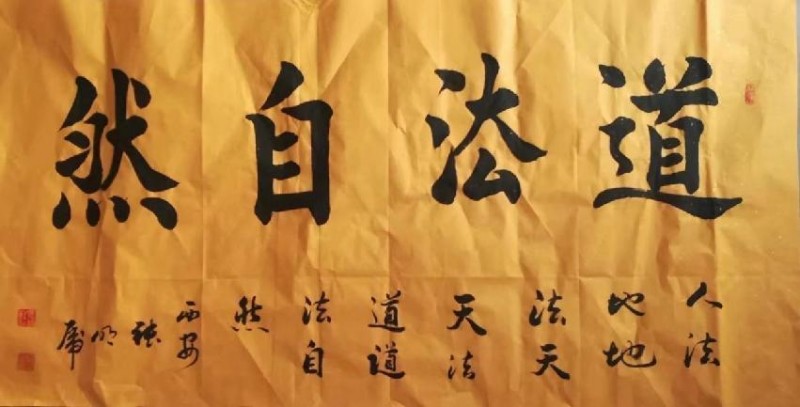 道法自然
人法
地地
法天
天法
道道
法自
然
西安